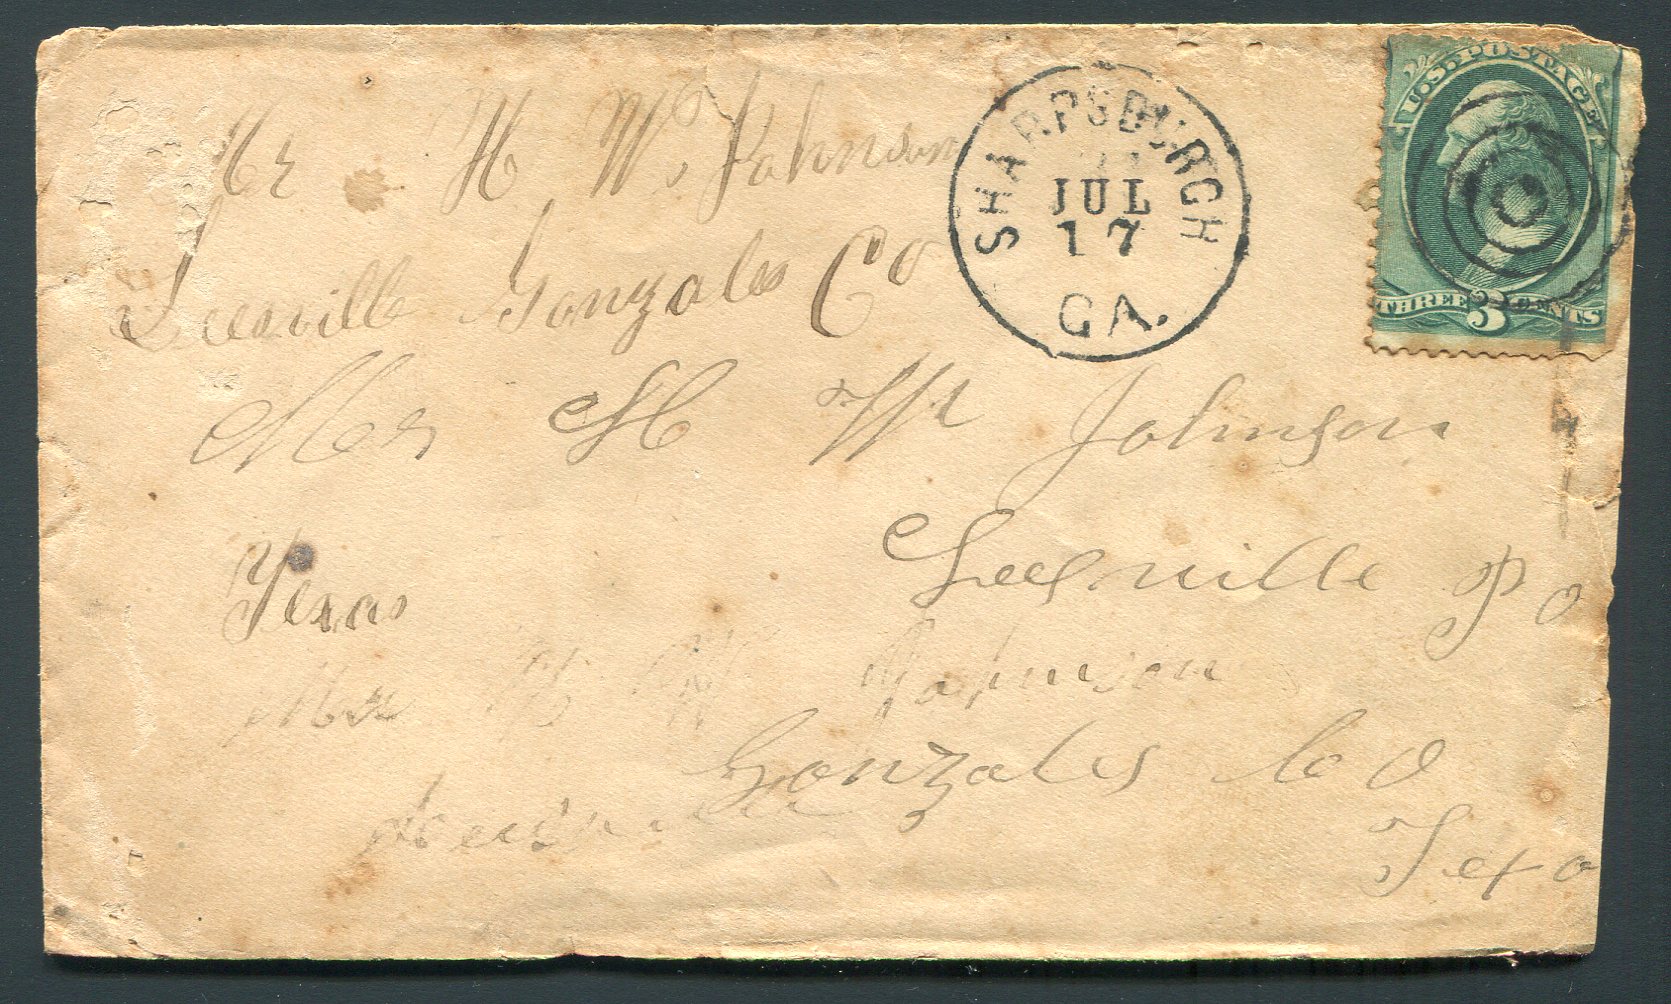 Mr H W. Johnson
Leesville Gonzales Co
SHARPSBURGH
JUL
17
GA.
U.S. POSTAGE
THREE 3 CENTS
Mr H W Johnson
Leesville P O
Texas
Mr H W Johnson
Gonzales Co
Leesville
Texa